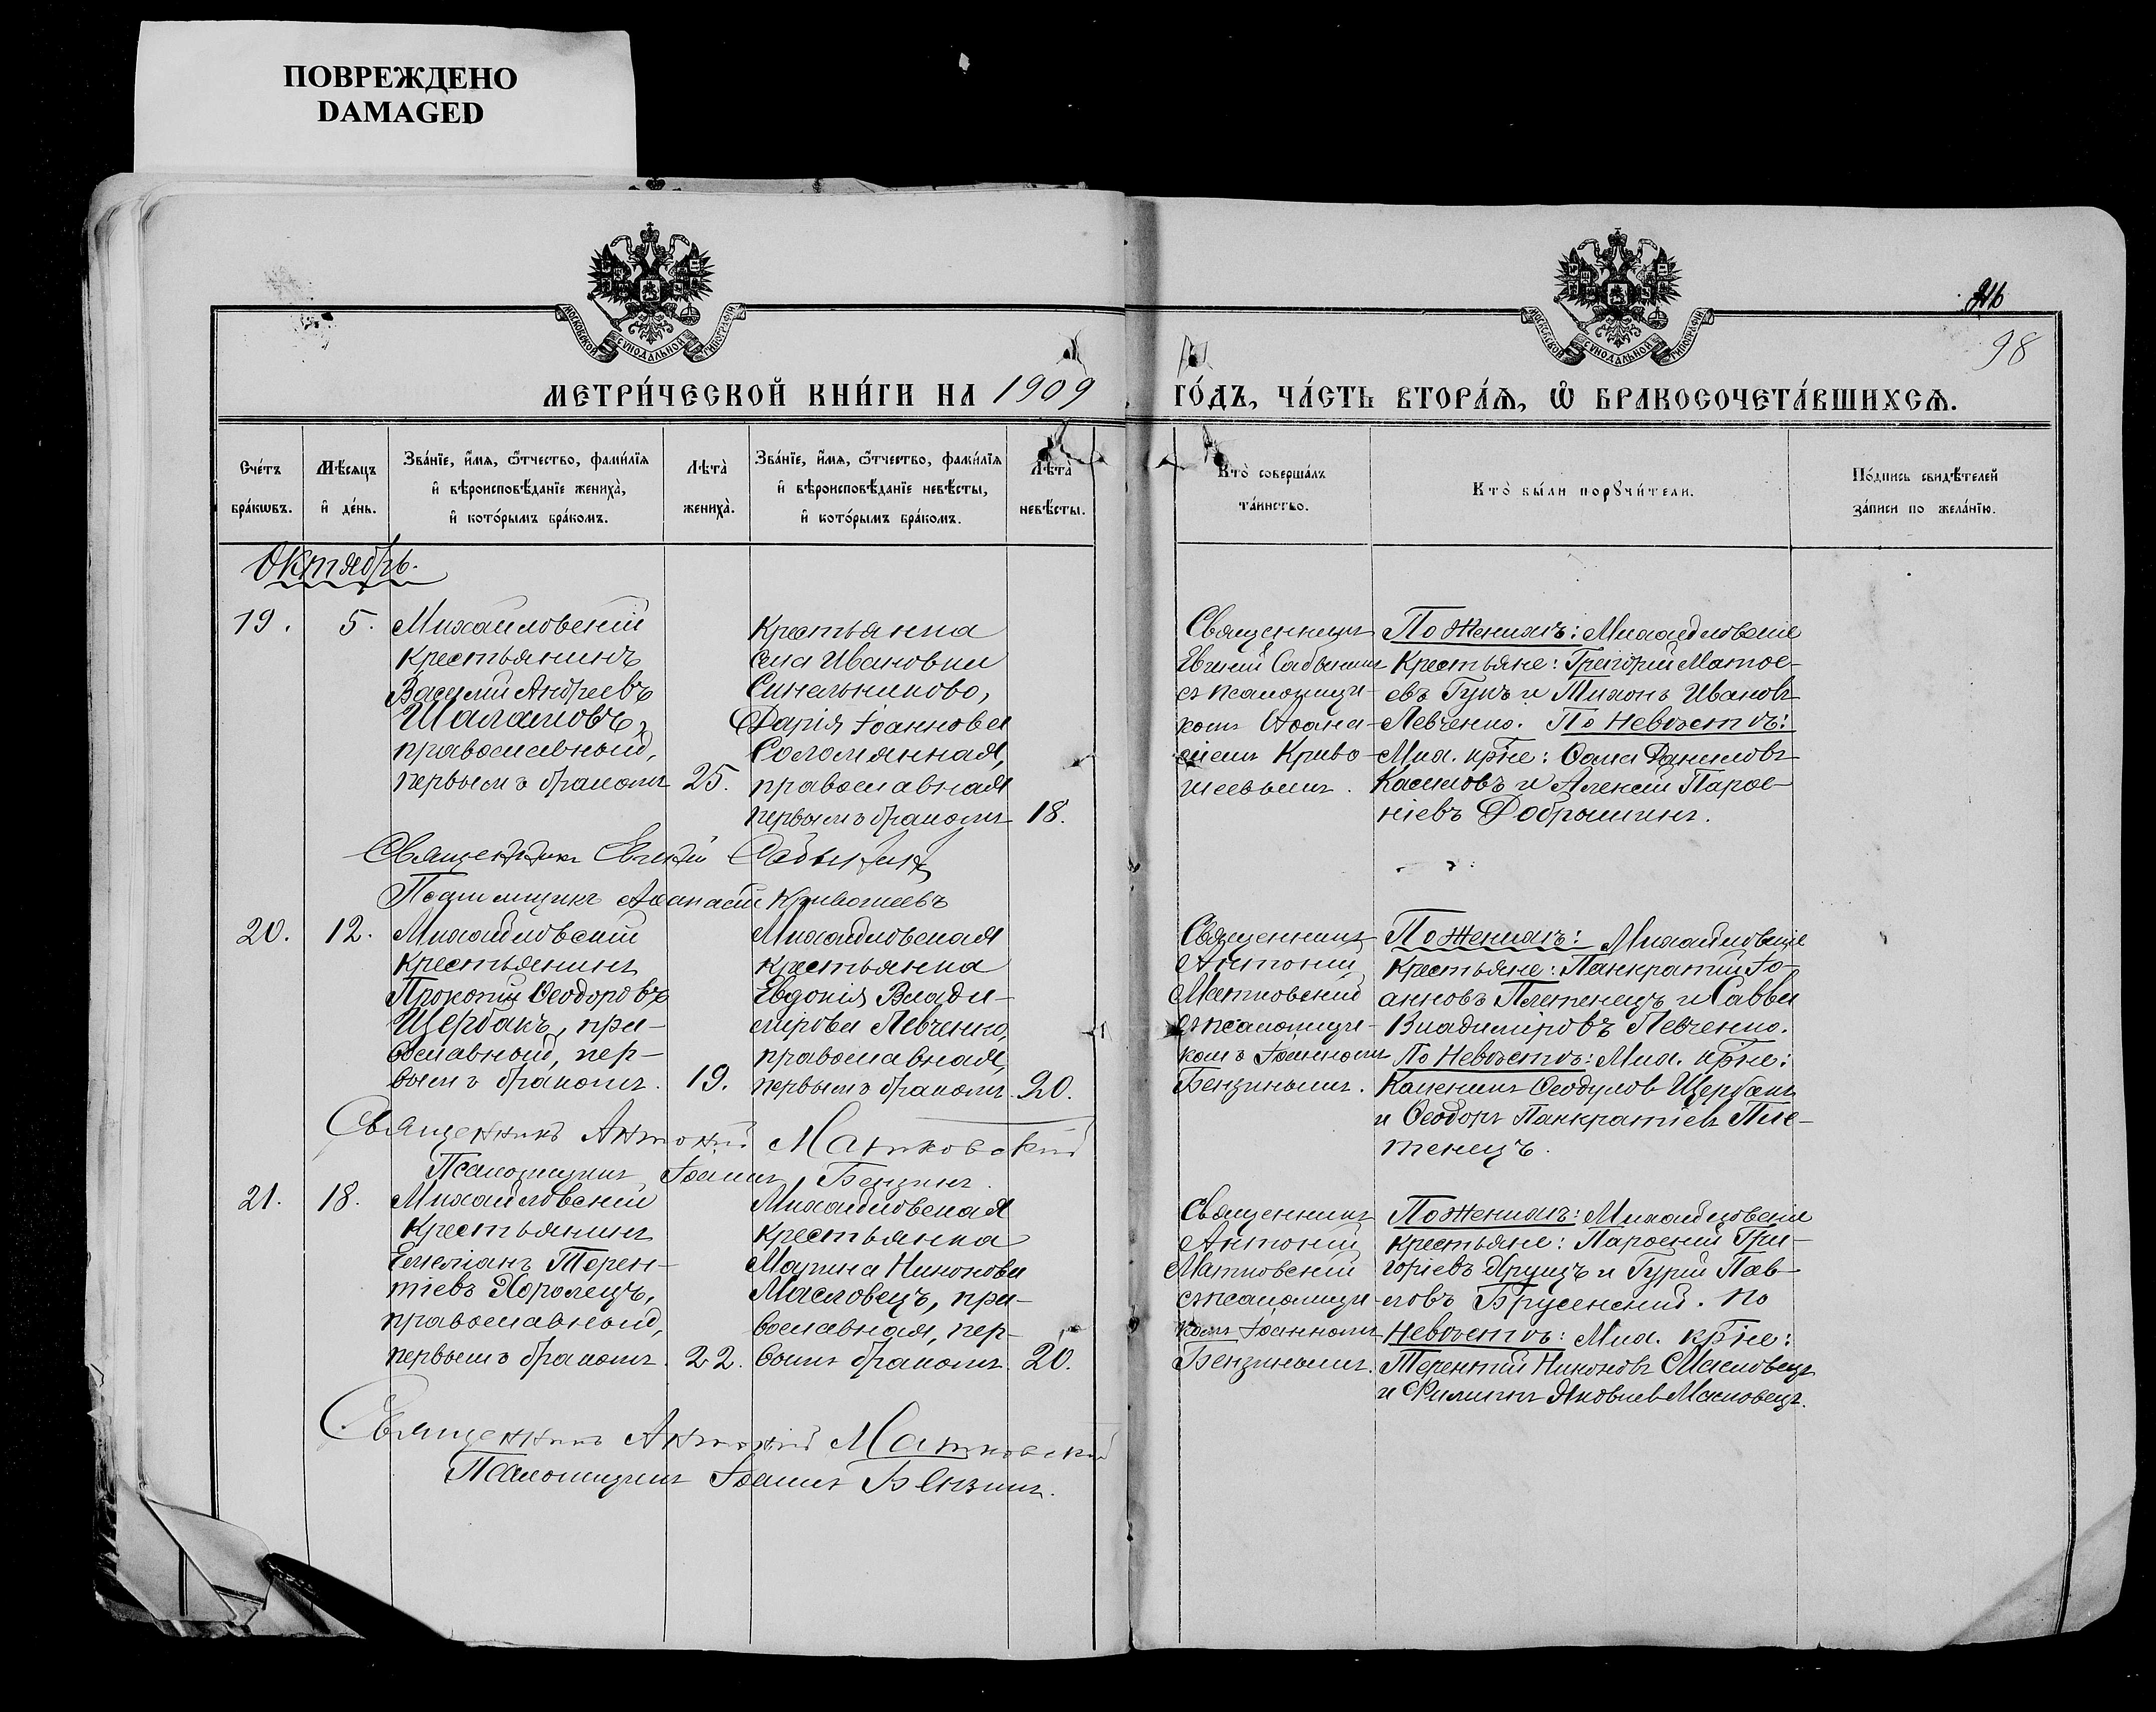 ПОВРЕЖДЕНО
DAMAGED
МОСКОВСКОЙ СѴНОДАЛЬНОЙ ТИПОГРАФІИ
МОСКОВСКОЙ СѴНОДАЛЬНОЙ ТИПОГРАФІИ
98
МЕТРИ́ЧЕСКОЙ КНИ́ГИ НА 1909 ГО́ДЪ, ЧА́СТЬ ВТОРА́Ѧ, Ѽ БРАКОСОЧЕТА́ВШИХСѦ.
Сче́тъ бра́кѡвъ.
Мѣ́сяцъ и҆ де́нь.
Зва́нїе, и҆́мя, ѻ҆́тчество, фами́лїя и҆ вѣроисповѣ́данїе жениха̀, и҆ кото́рымъ бра́комъ.
Лѣта̀ жениха̀.
Зва́нїе, и҆́мя, ѻ҆́тчество, фами́лїя и҆ вѣроисповѣ́данїе невѣ́сты, и҆ кото́рымъ бра́комъ.
Лѣта̀ невѣ́сты.
Кто̀ соверша́лъ та́инство.
Кто̀ бы́ли порꙋчи́тели.
По́дпись свидѣ́телей за́писи по жела́нїю.
Октябрь.
19.
5.
Михайловскій
крестьянинъ
Василій Андреевъ
Шаламовъ,
православный,
первымъ бракомъ
25.
Крестьянка
села Ивановки
Синельниково,
Дарія Іоаннова
Соломянная,
православная
первымъ бракомъ
18.
Священникъ
Евгеній Сабынинъ
съ псаломщи-
комъ Аѳана-
сіемъ Криво-
шеевымъ.
По женихѣ: Михайловскіе
крестьяне: Григорій Матѳе-
евъ Гукъ и Тихонъ Ивановъ
Левченко. По невѣстѣ:
Мих. кр̃не: Ѳома Даниловъ
Касимовъ и Алексій Парѳе-
ніевъ Добрышинъ.
Священникъ Евгеній Сабынинъ
Псаломщикъ Аѳанасій Кривошеевъ
20.
12.
Михайловскій
крестьянинъ
Прокопій Ѳеодоровъ
Щербакъ, пра-
вославный, пер-
вымъ бракомъ.
19.
Михайловская
крестьянка
Евдокія Влади-
мірова Левченко,
православная,
первымъ бракомъ.
20.
Священникъ
Антоній
Матковскій
съ псаломщи-
комъ Іоанномъ
Бензинымъ.
По женихѣ: Михайловскіе
крестьяне: Панкратій Іо-
анновъ Плетенецъ и Савва
Владиміровъ Левченко.
По невѣстѣ: Мих. кр̃не:
Каленикъ Ѳеодуловъ Щербакъ
и Ѳеодоръ Панкратіевъ Пле-
тенецъ.
Священникъ Антоній Матковскій
Псаломщикъ Іоаннъ Бензинъ.
21.
18.
Михайловскій
крестьянинъ
Емеліанъ Терен-
тіевъ Хоролецъ,
православный,
первымъ бракомъ.
22.
Михайловская
крестьянка
Марина Никонова
Масловецъ, пра-
вославная, пер-
вымъ бракомъ.
20.
Священникъ
Антоній
Матковскій
съ псаломщи-
комъ Іоанномъ
Бензинымъ.
По женихѣ: Михайловскіе
крестьяне: Парѳеній Гри-
горіевъ и Гурій Пав-
ловъ Брусенскій. По
невѣстѣ: Мих. кр̃не:
Терентій Никоновъ Масловецъ
и Филиппъ Яковлевъ Масловецъ.
Священникъ Антоній Матковскій
Псаломщикъ Іоаннъ Бензинъ.